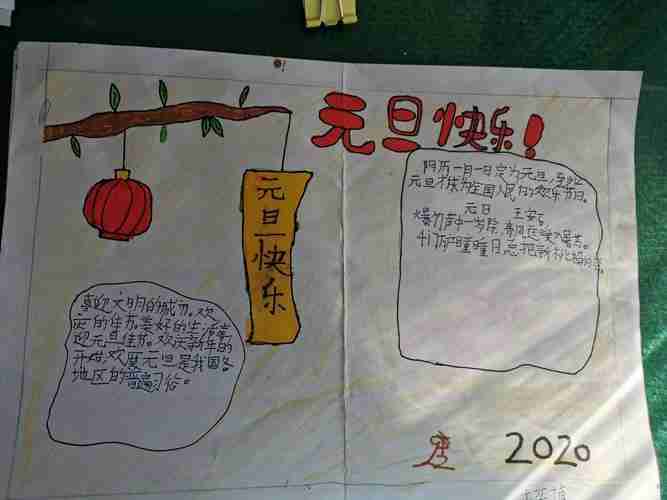 元旦快乐!
元旦快乐
阳历一月一日定为元旦,
元旦才成为全国人民的欢乐节日。
元日 王安石
爆竹声中一岁除,春风送暖入屠苏。
千门万户曈曈日总把新桃换旧符。
喜迎文明的城力,欢
定的佳办,美好的生活喜
迎元旦佳办。欢庆新年的
开始,欢度元旦是我国各
地区的普遍习俗。
2020